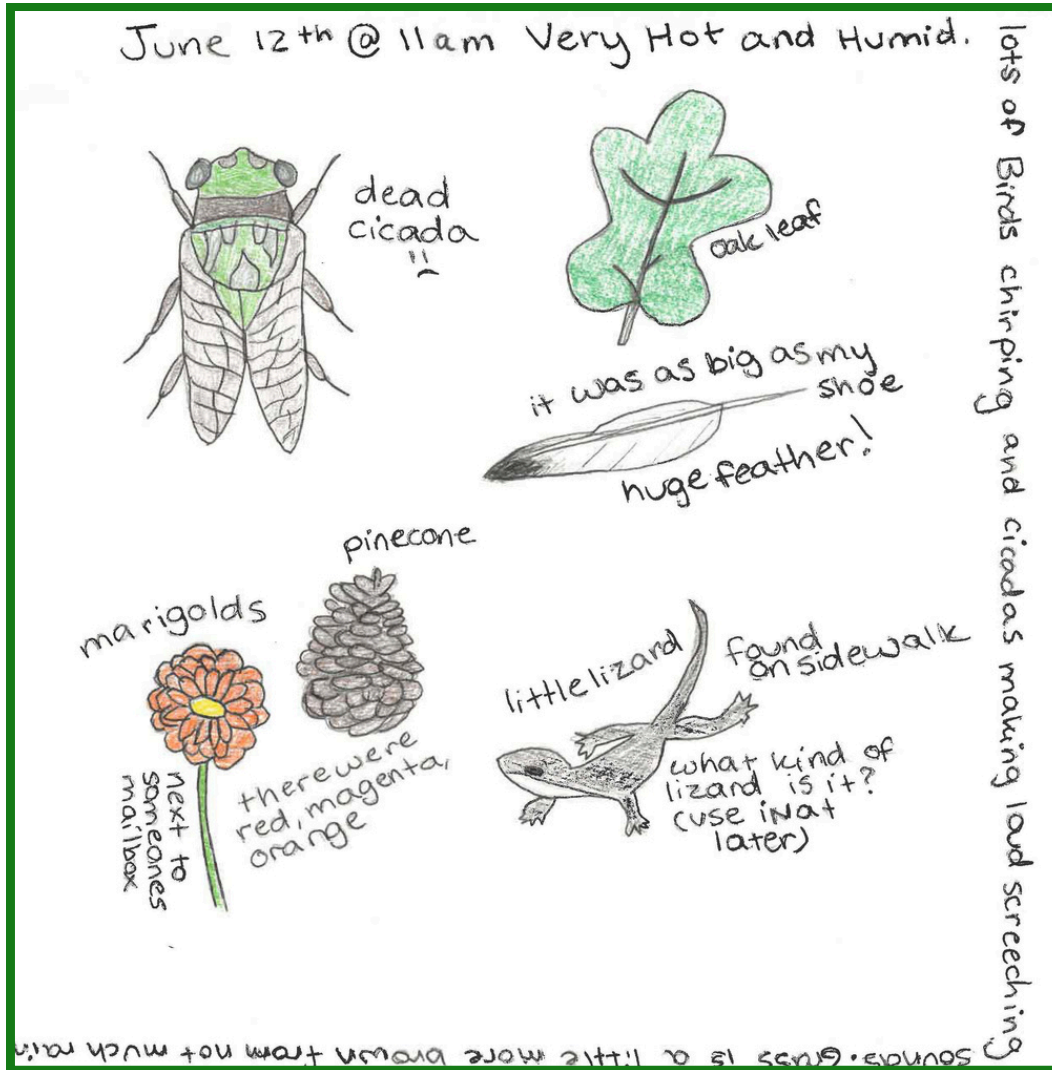 June 12th @ 11am Very Hot and Humid.
lots of Birds chirping and cicadas making loud screeching
sounds. Grass is a little more brown from not much rain
dead
cicada
oak leaf
it was as big as my
shoe
huge feather!
pinecone
marigolds
next to
someones
mailbox
there were
red, magenta,
orange
little lizard
found
on sidewalk
what kind of
lizard is it?
(use iNat
later)